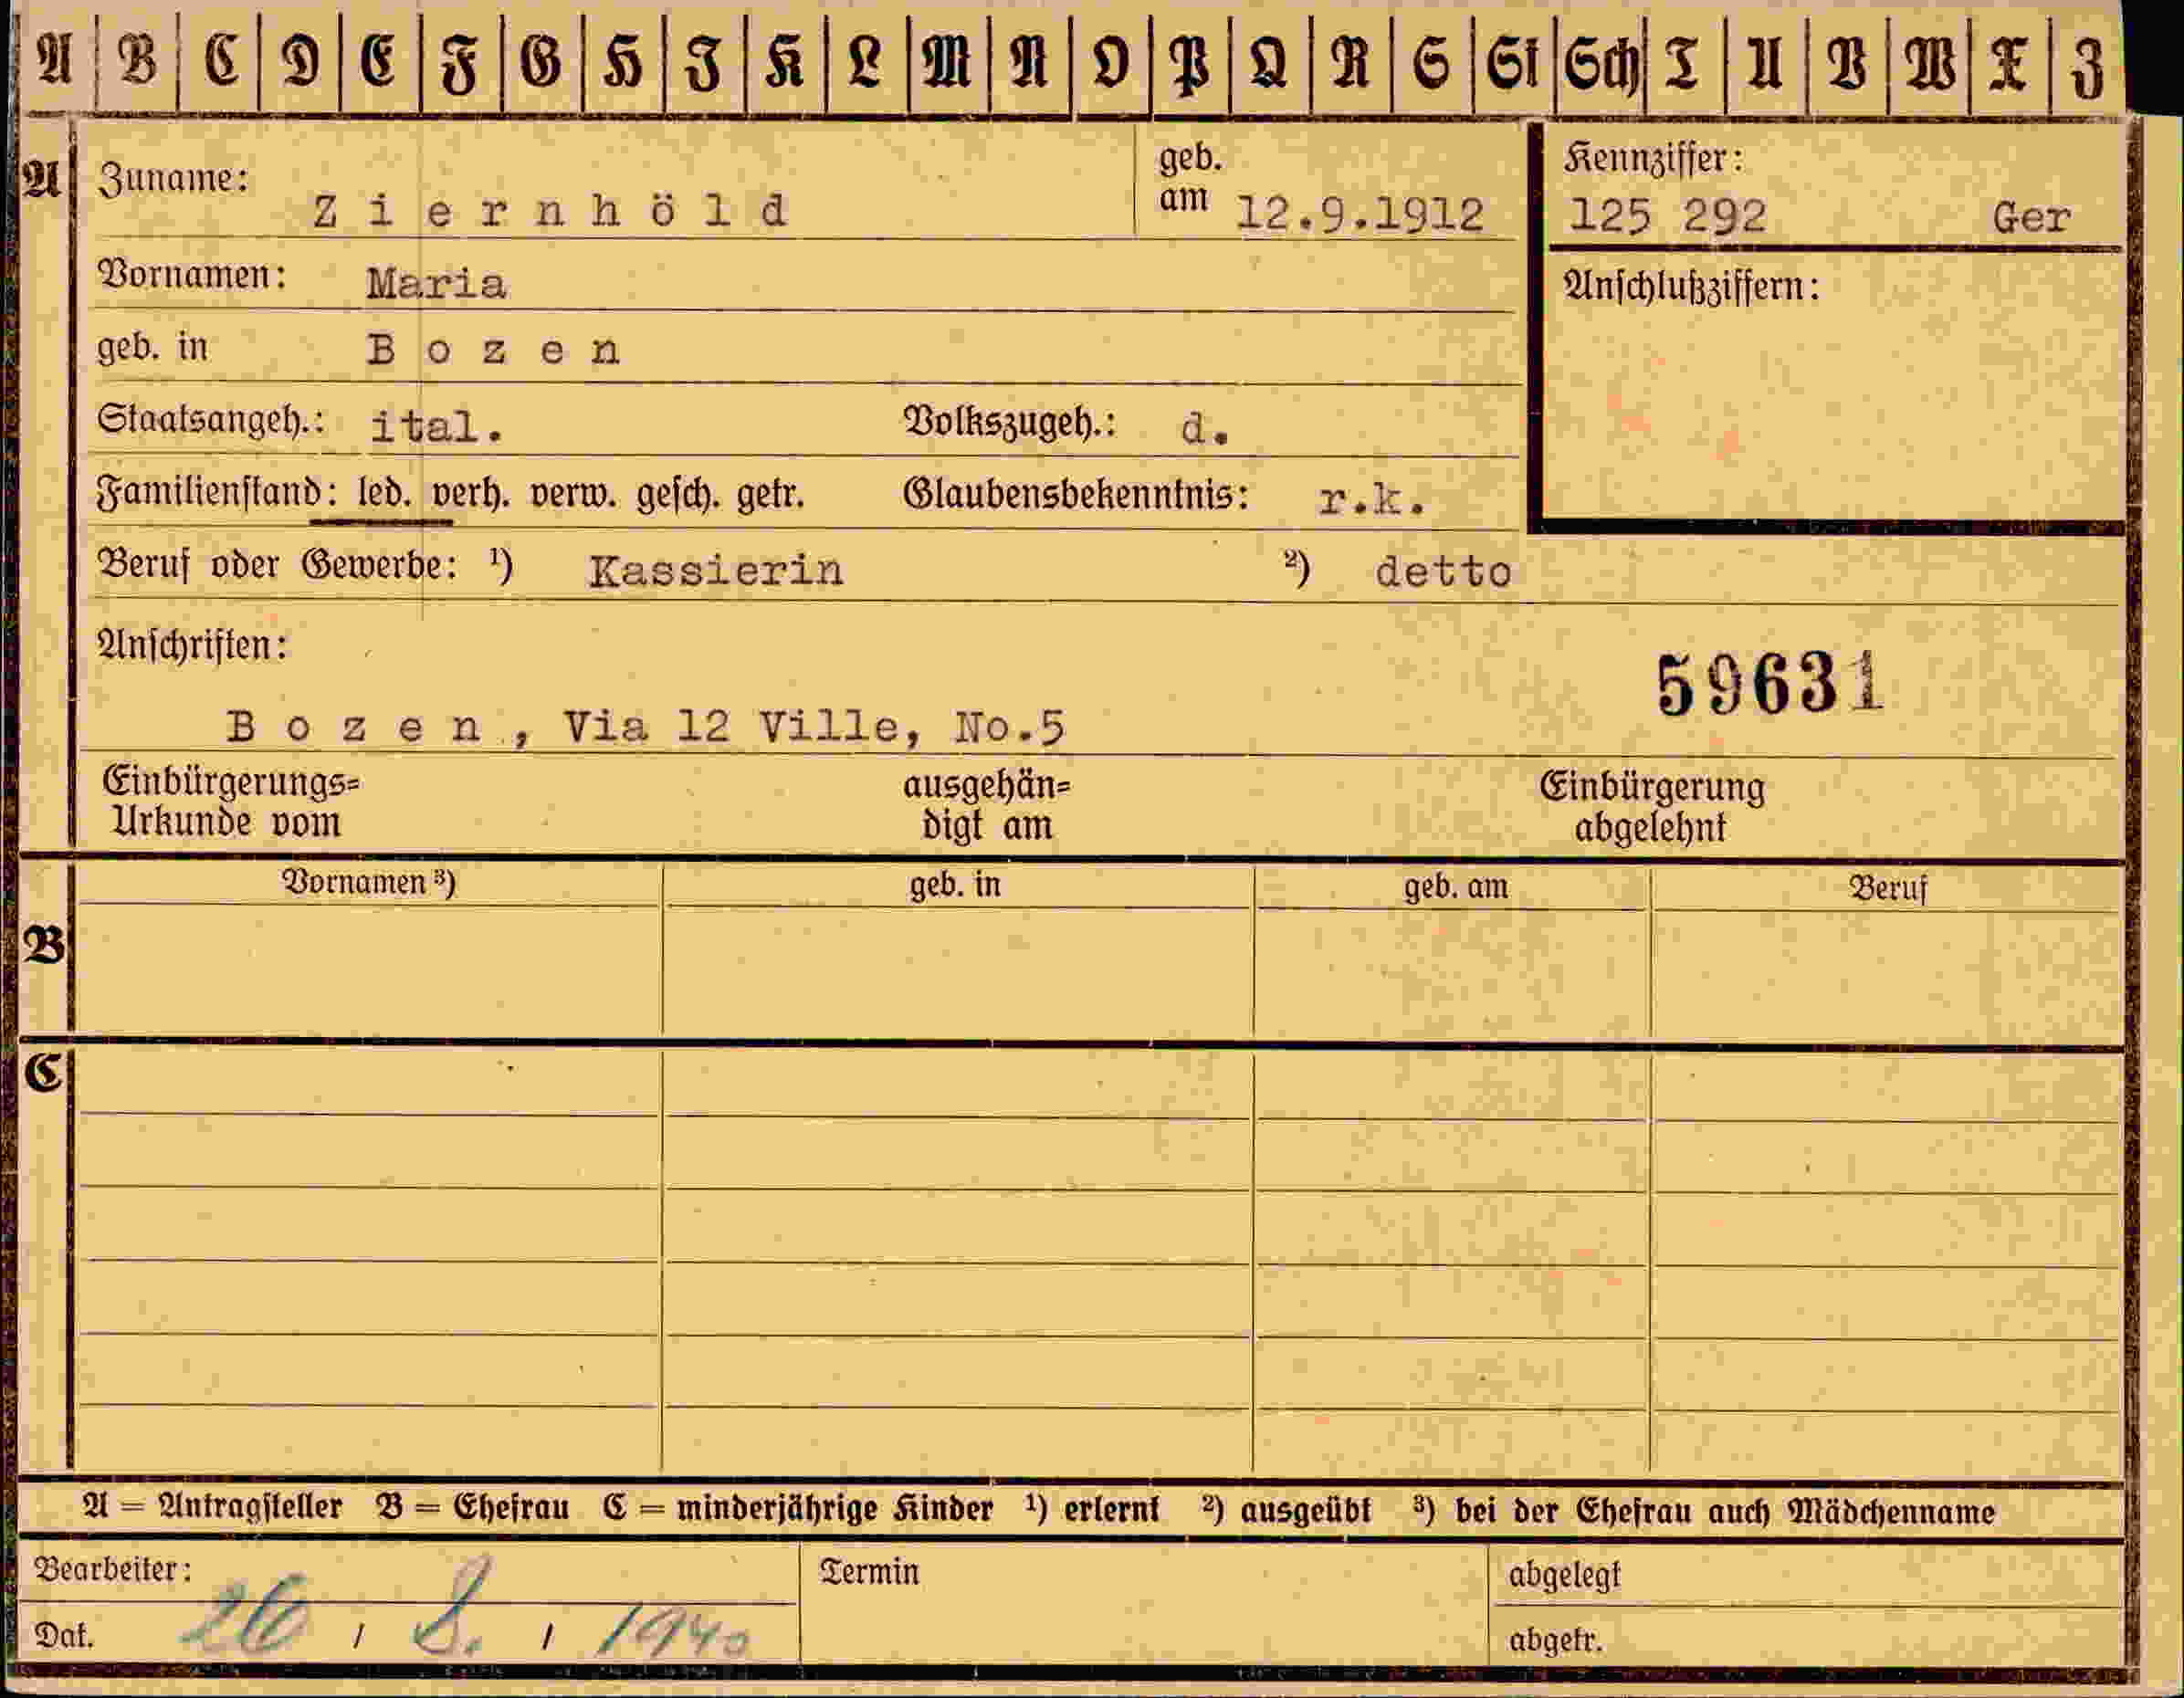 A B C D E F G H I K L M N O P Q R S St Sch T U V W X Z
A Zuname: Ziernhöld geb. am 12.9.1912 Kennziffer: 125 292 Ger
Vornamen: Maria Anschlußziffern:
geb. in Bozen
Staatsangeh.: ital. Volkszugeh.: d.
Familienstand: led. verh. verw. gesch. getr. Glaubensbekenntnis: r.k.
Beruf oder Gewerbe: ¹) Kassierin ²) detto
Anschriften:
59631
Bozen, Via 12 Ville, No.5
Einbürgerungs= ausgehän= Einbürgerung
Urkunde vom digt am abgelehnt
Vornamen ³) geb. in geb. am Beruf
B
C
A = Antragsteller B = Ehefrau C = minderjährige Kinder ¹) erlernt ²) ausgeübt ³) bei der Ehefrau auch Mädchenname
Bearbeiter: Termin abgelegt
Dat. 26 / 8. / 1940 abgetr.